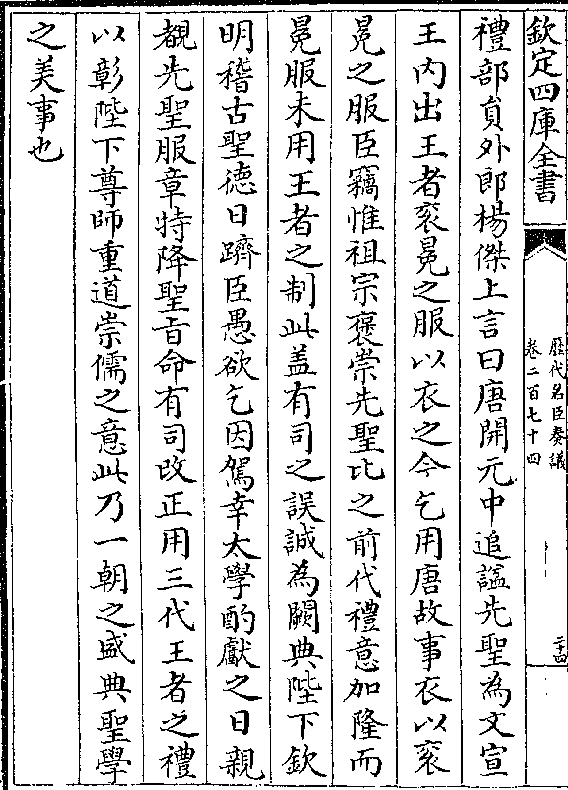 欽定四庫全書
歷代名臣奏議
卷二百七十四
二十四
禮部員外郎楊傑上言曰唐開元中追謚先聖為文宣
王內出王者衮冕之服以衣之今乞用唐故事衣以衮
冕之服臣竊惟祖宗褒崇先聖比之前代禮意加隆而
冕服未用王者之制此盖有司之誤誠為闕典陛下欽
明稽古聖德日躋臣愚欲乞因駕幸太學酌獻之日親
覩先聖服章特降聖旨命有司改正用三代王者之禮
以彰陛下尊師重道崇儒之意此乃一朝之盛典聖學
之美事也